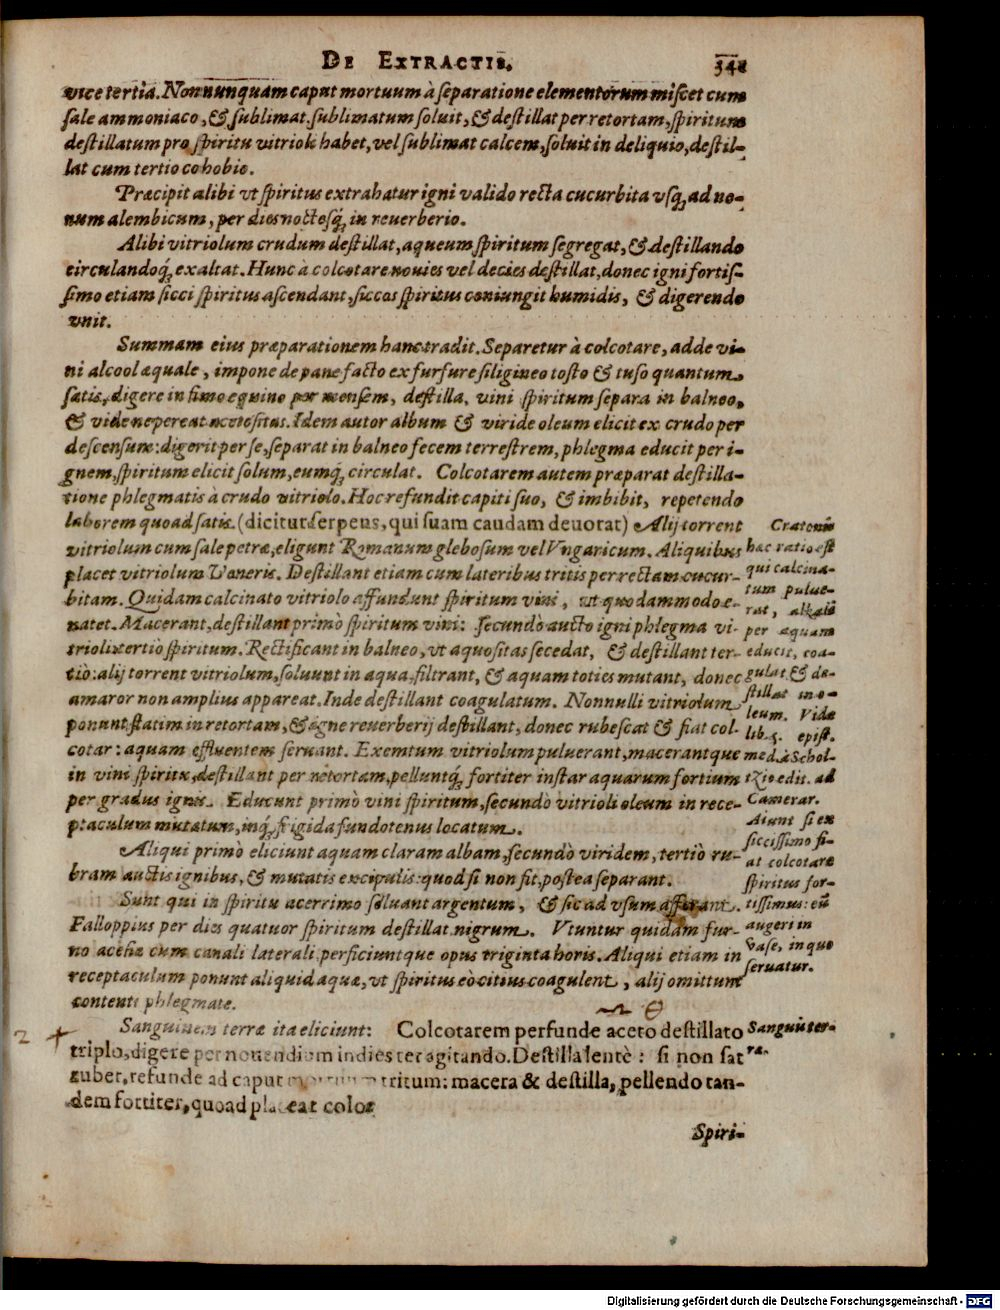 De Extractis.
vice tertia. Nonnunquam caput mortuum à separatione elementorum miscet cum
sale ammoniaco, & sublimat. sublimatum soluit, & destillat per retortam, spiritum
destillatum pro spiritu vitrioli habet, vel sublimat calcem, soluit in deliquio, destil-
lat cum tertio cohobio.
Præcipit alibi vt spiritus extrahatur igni valido recta cucurbita vsq; ad no-
num alembicum, per dies noctesq; in reuerberio.
Alibi vitriolum crudum destillat, aqueum spiritum segregat, & destillando
circulandoq; exaltat. Hunc à colcotare nouies vel decies destillat, donec igni fortis-
simo etiam sicci spiritus ascendant, siccos spiritus coniungit humidis, & digerendo
vnit.
Summam eius præparationem hanc tradit. Separetur à colcotare, adde vi-
ni alcool æquale, impone de pane facto ex furfure siligineo tosto & tuso quantum
satis, digere in fimo equino per mensem, destilla, vini spiritum separa in balneo,
& vide ne pereat acetositas. Idem autor album & viride oleum elicit ex crudo per
descensum: digerit per se, separat in balneo fecem terrestrem, phlegma educit per i-
gnem, spiritum elicit solum, eumq; circulat. Colcotarem autem præparat destilla-
tione phlegmatis à crudo vitriolo. Hoc refundit capiti suo, & imbibit, repetendo
laborem quoad satis. (dicitur serpens, qui suam caudam deuorat) Alij torrent
vitriolum cum sale petræ, eligunt Romanum glebosum vel Vngaricum. Aliquibus
placet vitriolum Veneris. Destillant etiam cum lateribus tritis per rectam cucur-
bitam. Quidam calcinato vitriolo affundunt spiritum vini, ut quodammodo e-
natet. Macerant, destillant primò spiritum vini: secundò aucto igni phlegma vi-
trioli: tertiò spiritum. Rectificant in balneo, vt aquositas secedat, & destillant ter-
tiò: alij torrent vitriolum, soluunt in aqua, filtrant, & aquam toties mutant, donec
amaror non amplius appareat. Inde destillant coagulatum. Nonnulli vitriolum
ponunt statim in retortam, & igne reuerberij destillant, donec rubescat & fiat col-
cotar: aquam effluentem seruant. Exemtum vitriolum puluerant, macerantque
in vini spiritu, destillant per retortam, pelluntq; fortiter instar aquarum fortium
per gradus ignis. Educunt primò vini spiritum, secundò vitrioli oleum in rece-
ptaculum mutatum, inq; frigida fundotenus locatum.
Aliqui primò eliciunt aquam claram albam, secundò viridem, tertiò ru-
bram auctis ignibus, & mutatis excipulis: quod si non fit, postea separant.
Sunt qui in spiritu acerrimo soluant argentum, & sic ad vsum afferant.
Falloppius per dies quatuor spiritum destillat nigrum. Vtuntur quidam fur-
no acediæ cum canali laterali perficiuntque opus triginta horis. Aliqui etiam in
receptaculum ponunt aliquid aquæ, vt spiritus eò citius coagulent, alij omittunt
contenti phlegmate.
Sanguinem terræ ita eliciunt: Colcotarem perfunde aceto destillato
triplo, digere per nouendium indies ter agitando. Destilla lentè: si non sat
ruber, refunde ad caput mortuum tritum: macera & destilla, pellendo tan-
dem fortiter, quoad placeat color
Spiri-
Cratonis
hæc ratio est
qui calcina-
tum pulue-
rat, alkali
per aquam
educit, coa-
gulat & de-
stillat in o-
leum. Vide
lib. 5. epist.
med. à Schol-
tzio edit. ad
Camerar.
Aiunt si ex
siccissimo fi-
at colcotare
spiritus for-
tissimus: eũ
augeri in
vase, in quo
seruatur.
Sanguis ter-
ræ.
2
Digitalisierung gefördert durch die Deutsche Forschungsgemeinschaft - DFG